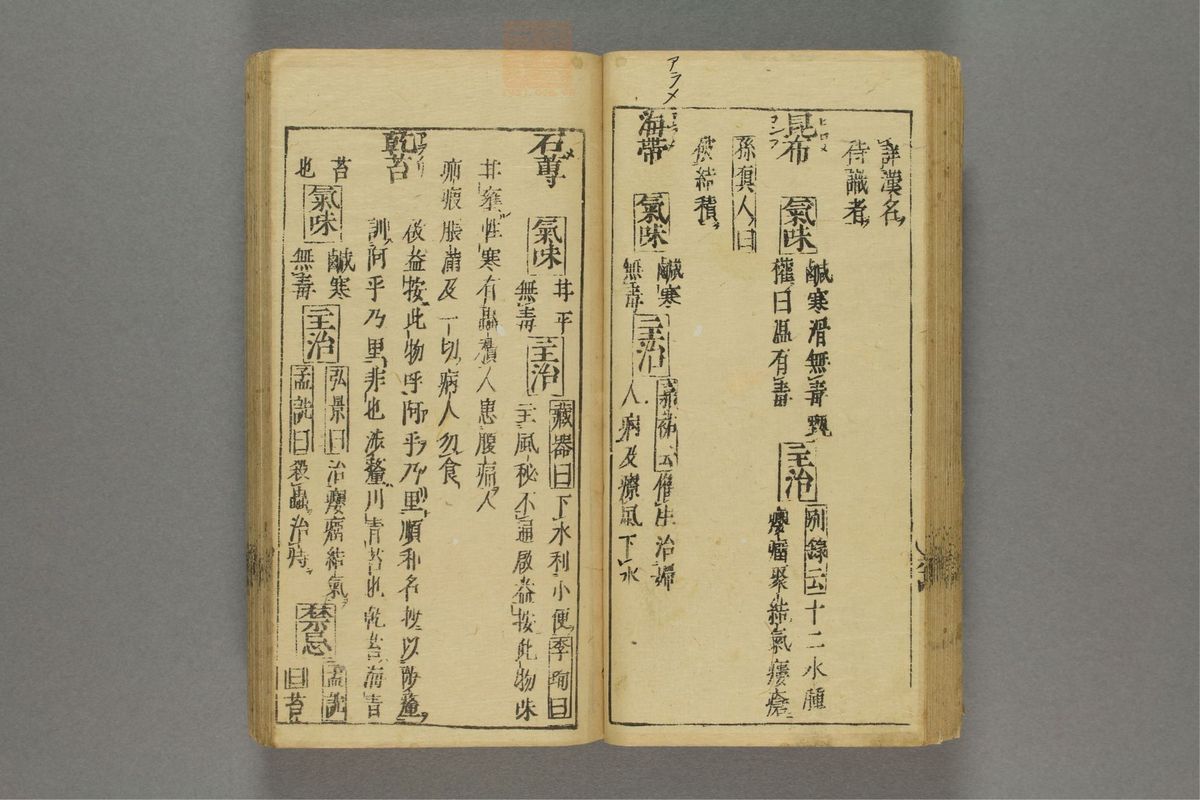 アラメ
詳漢名
待識者
昆布 氣味 鹹寒滑無毒甄
權曰温有毒 主治 別錄云十二水腫
癭瘤聚結氣瘻瘡
孫真人曰
結積
海帶 氣味 鹹寒
無毒 主治 嘉祐云催生治婦
人病及療風下水
石蓴 氣味 甘平
無毒 主治 藏器曰下水利小便李珣曰
主風秘不通啟益按此物味
甘性寒有蟲積人患腹痛人
脹滿及一切病人勿食
乾苔
啟益按此物呼阿乎乃里順和名抄以陟釐
訓阿乎乃里非也陟釐川青苔也乾苔海青
苔也 氣味 鹹寒
無毒 主治 弘景曰治癭瘤結氣
孟詵曰殺蟲治痔 禁忌 孟詵
曰苔